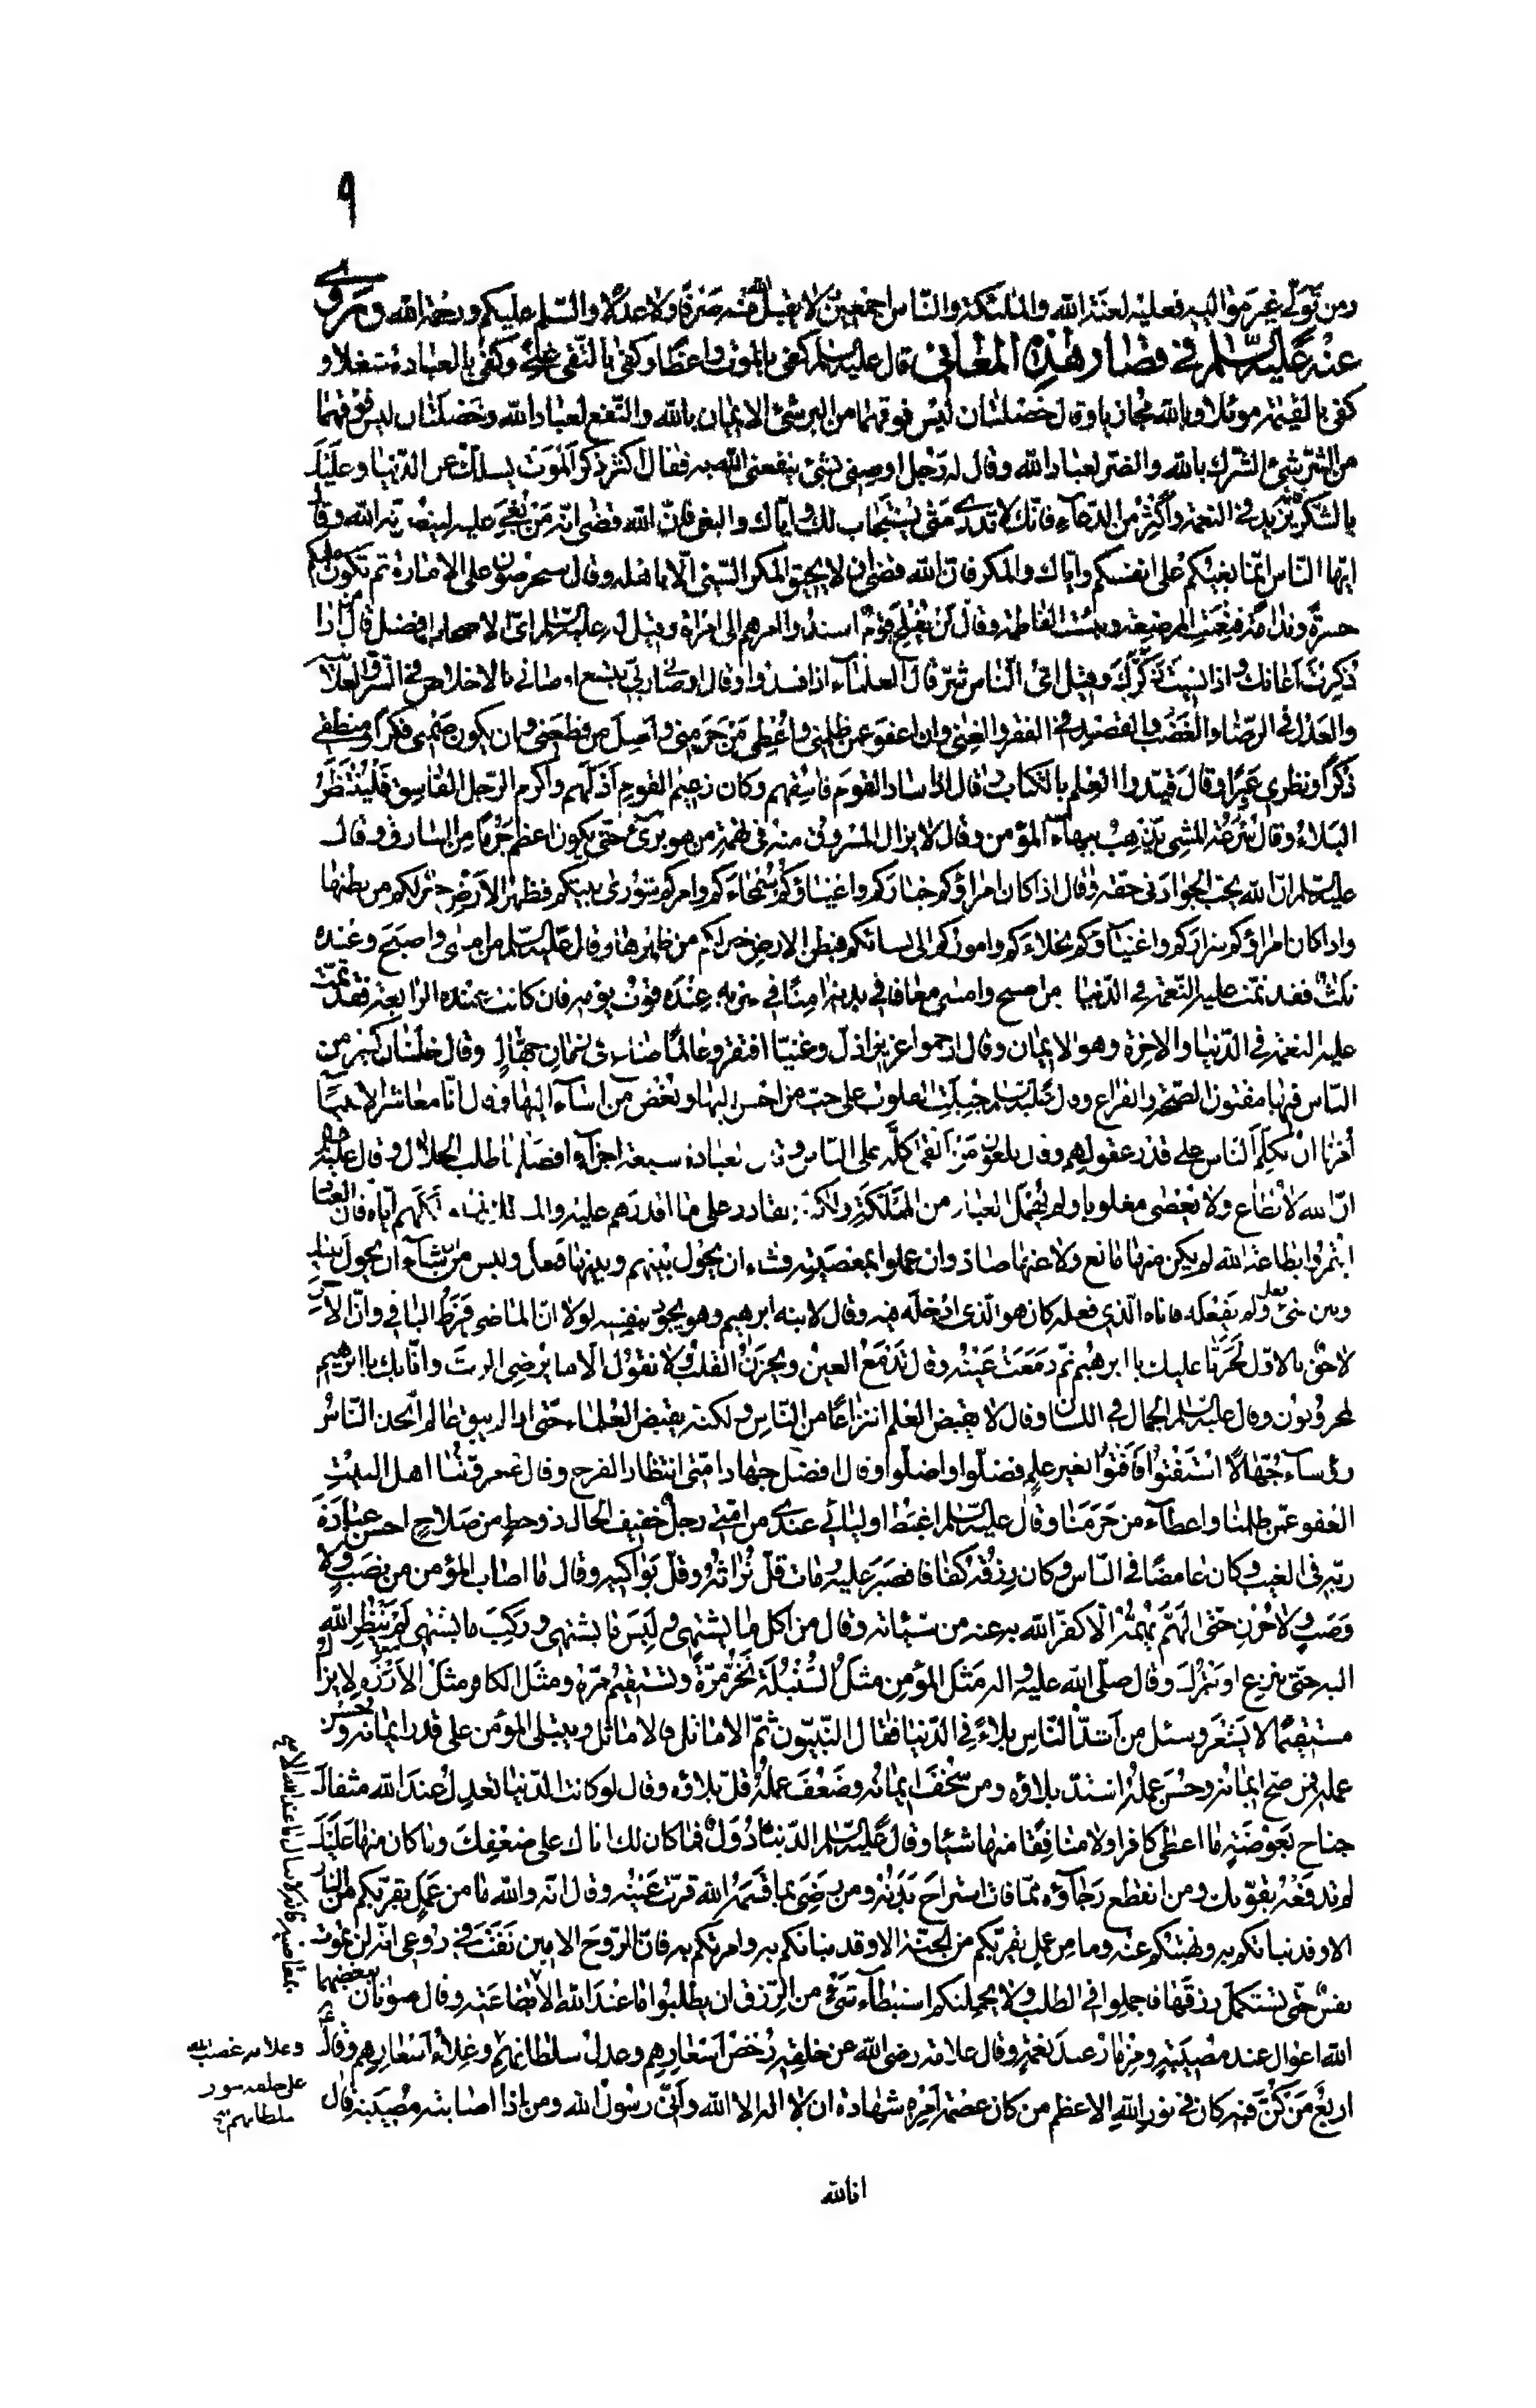 ٩
ومن تولى غير مواليه فعليه لعنة الله والملئكة والناس اجمعين لا يقبل الله منه صرفا ولا عدلا والسلم عليكم ورحمة الله وروى
عنه عليه السلم في قصار هذه المعاني قال عليه السلم كفى بالموت واعظا وكفى بالتقى غنى وكفى بالعبادة شغلا و
كفى بالقيمة موئلا وبالله مجازيا وقال خصلتان ليس فوقهما من البر شئ الايمان بالله والنفع لعباد الله وخصلتان ليس فوقهما
من الشر شئ الشرك بالله والضر لعباد الله وقال له رجل اوصني بشئ ينفعني الله به فقال اكثر ذكر الموت يسلك عن الدنيا وعليك
بالشكر فانه يزيد في النعمة واكثر من الدعاء فانك لا تدري متى يستجاب لك واياك والبغى فان الله قضى انه من بغى عليه لينصرنه الله وقال
ايها الناس انما بغيكم على انفسكم واياك والمكر فان الله قضى ان لا يحيق المكر السيئ الا باهله وقال ستحرصون على الامارة ثم تكون عليكم
حسرة وندامة فنعمت المرضعة وبئست الفاطمة وقال لن يفلح قوم اسندوا امرهم الى امراة وقيل له عليه السلم اي الاصحاب افضل قال من اذا
ذكرت اعانك واذا نسيت ذكرك وقيل اي الناس شر قال العلماء اذا فسدوا وقال اوصاني ربي بتسع اوصاني بالاخلاص في السر والعلانية
والعدل في الرضا والغضب والقصد في الفقر والغنى وان اعفو عمن ظلمني واعطي من حرمني واصل من قطعني وان يكون صمتي فكرا ومنطقي
ذكرا ونظري عبرا وقال قيدوا العلم بالكتاب وقال اذا ساد القوم فاسقهم وكان زعيم القوم اذلهم واكرم الرجل الفاسق فلينتظر
البلاء وقال سرعة المشي يذهب ببهاء المؤمن وقال لا يزال المسروق منه في تهمة من هو برئ حتى يكون اعظم جرما من السارق وقال
عليه السلم ان الله يحب الجواد في حقه وقال اذا كان امراؤكم خياركم واغنياؤكم سمحاءكم وامركم شورى بينكم فظهر الارض خير لكم من بطنها
واذا كان امراؤكم شراركم واغنياؤكم بخلاءكم واموركم الى نسائكم فبطن الارض خير لكم من ظهرها وقال عليه السلم من امسى واصبح وعنده
ثلاث فقد تمت عليه النعمة في الدنيا من اصبح وامسى معافا في بدنه امنا في سربه عنده قوت يومه فان كانت عنده الرابعة فقد تمت
عليه النعمة في الدنيا والاخرة وهو الايمان وقال ارحموا عزيزا ذل وغنيا افتقر وعالما ضاع في زمان جهال وقال خلتان كثير من
الناس فيهما مفتون الصحة والفراغ وقال عليه السلم جبلت القلوب على حب من احسن اليها وبغض من اساء اليها وقال انا معاشر الانبياء
امرنا ان نكلم الناس على قدر عقولهم وقال ملعون من القى كله على الناس وقال العبادة سبعة اجزاء افضلها طلب الحلال وقال عليه السلم
ان الله لا يطاع ولا يعصى مغلوبا ولم يهمل العباد من المملكة ولكنه القادر على ما اقدرهم عليه والمالك لما ملكهم اياه فان العباد
ائتمروا بطاعة الله لم يكن منها مانع ولا عنها صاد وان عملوا بمعصيته فشاء ان يحول بينهم وبينها فعل وليس من شاء ان يحول بينك
وبين شئ فعل ولم يفعله فاتاه الذي فعله كان هو الذي ادخله فيه وقال لابنه ابرهيم وهو يجود بنفسه لولا ان الماضي فرط الباقي وان الاخر
لاحق بالاول لحزنا عليك يا ابرهيم ثم دمعت عينه وقال تدمع العين ويحزن القلب ولا نقول الا ما يرضي الرب وانا بك يا ابرهيم
لمحزونون وقال عليه السلم الجمال في اللسان وقال لا يقبض العلم انتزاعا من الناس ولكنه يقبض العلماء حتى اذا لم يبق عالم اتخذ الناس
رؤساء جهالا استفتوا فافتوا بغير علم فضلوا واضلوا وقال افضل جهاد امتي انتظار الفرج وقال مروتنا اهل البيت
العفو عمن ظلمنا واعطاء من حرمنا وقال عليه السلم اغبط اوليائي عندي من امتي رجل خفيف الحال ذو حظ من صلاح احسن عبادة
ربه في الغيب وكان غامضا في الناس وكان رزقه كفافا فصبر عليه ومات قل تراثه وقل بواكيه وقال ما اصاب المؤمن من نصب ولا
وصب ولا حزن حتى الهم يهمه الا كفر الله به عنه من سيئاته وقال من اكل ما يشتهي ولبس ما يشتهي وركب ما يشتهي لم ينظر الله
اليه حتى ينزع او يترك وقال صلى الله عليه واله مثل المؤمن مثل السنبلة تخر مرة وتستقيم مرة ومثل الكافر مثل الارزة لا يزال
مستقيما لا يشعر وسئل من اشد الناس بلاء في الدنيا فقال النبيون ثم الاماثل فالاماثل ويبتلى المؤمن على قدر ايمانه وحسن
عمله فمن صح ايمانه وحسن عمله اشتد بلاؤه ومن سخف ايمانه وضعف عمله قل بلاؤه وقال لو كانت الدنيا تعدل عند الله مثقال
جناح بعوضة ما اعطى كافرا ولا منافقا منها شيئا وقال عليه السلم الدنيا دول فما كان لك اتاك على ضعفك وما كان منها عليك
لم تدفعه بقوتك ومن انقطع رجاؤه مما فات استراح بدنه ومن رضي بما قسمه الله قرت عينه وقال انه والله ما من عمل يقربكم من النار
الا وقد نباتكم به ونهيتكم عنه وما من عمل يقربكم من الجنة الا وقد نباتكم به وامرتكم به فان الروح الامين نفث في روعي انه لن تموت
نفس حتى تستكمل رزقها فاجملوا في الطلب ولا يحملنكم استبطاء شئ من الرزق ان يطلبوا ما عند الله الا بطاعته وقال صوتان يبغضهما
الله اعوال عند مصيبة ومزمار عند نعمة وقال علامة رضى الله عن خلقه رخص اسعارهم وعدل سلطانهم وغلاء اسعارهم وقال
اربع من كن فيه كان في نور الله الاعظم من كان عصمة امره شهادة ان لا اله الا الله وأني رسول الله ومن اذا اصابته مصيبة قال
وعلامة غضب الله
على خلقه جور
سلطانهم
انا لله